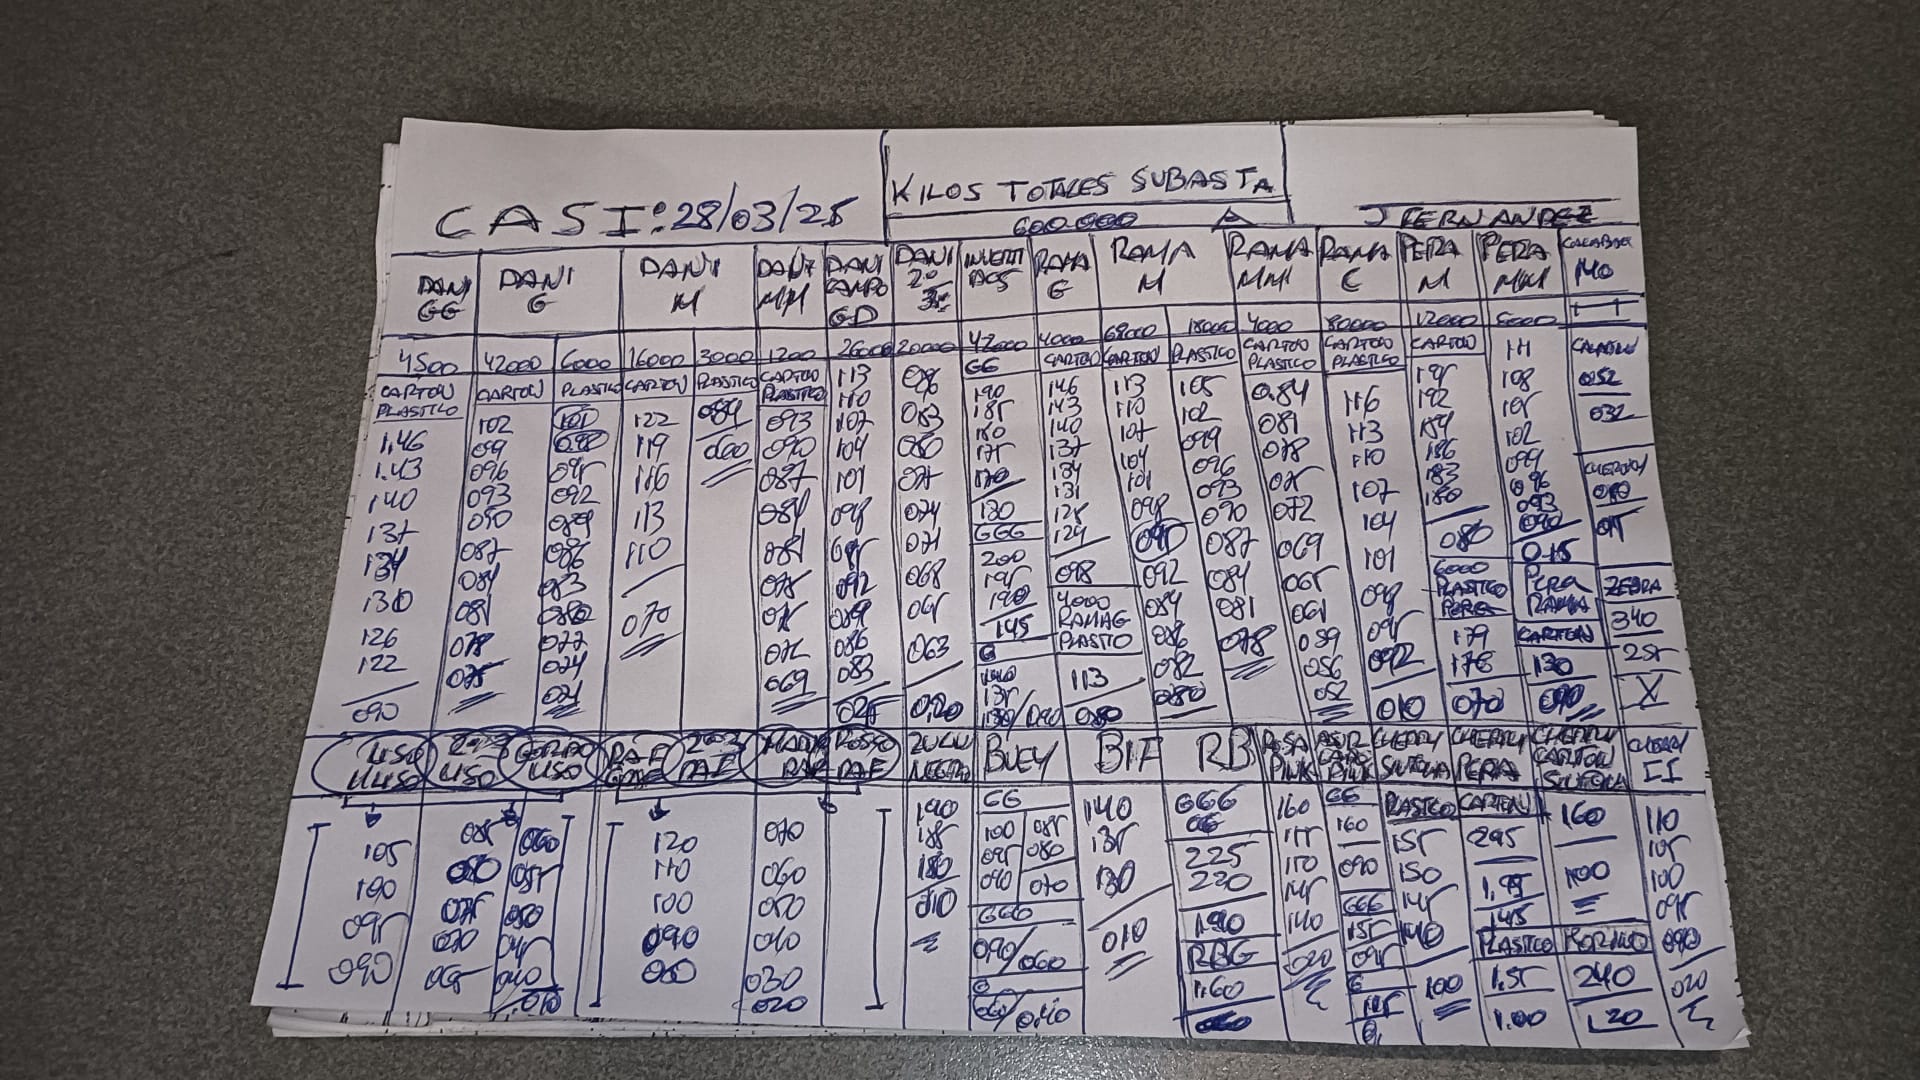 KILOS TOTALES SUBASTA
CASI: 28/03/25
600.000
J FERNANDEZ
DANI GG
DANI G
DANI M
DANI MM
DANI CAMPO GD
DANI 2º
RAMA G
RAMA M
RAMA MM
RAMA C
PERA M
PERA MM
4500
42000
6000
16000
3000
1200
26000
20000
42000
4000
68000
18000
4000
80000
12000
5000
CARTON PLASTICO
CARTON
PLASTICO
CARTON
PLASTICO
CARTON PLASTICO
GG
CARTON
CARTON
PLASTICO
CARTON PLASTICO
CARTON PLASTICO
CARTON
1.46
1.43
140
137
134
130
126
122
090
102
099
096
093
090
087
084
081
078
075
101
098
095
092
089
086
083
080
077
074
071
122
119
116
113
110
070
084
060
093
090
087
084
081
078
075
072
069
113
110
107
104
101
098
095
092
089
086
083
025
086
083
080
077
074
071
068
065
063
020
190
185
180
175
170
130
GGG
200
195
190
145
G
140
135
130/090
146
143
140
137
134
131
128
124
098
4000
RAMA G
PLASTICO
113
080
113
110
107
104
101
098
095
092
105
102
099
096
093
090
087
084
081
078
0.84
081
078
075
072
069
065
061
059
056
052
116
113
110
107
104
101
098
095
092
010
195
192
189
186
183
180
080
6000
PLASTICO
PERA
179
176
070
111
108
105
102
099
096
093
090
0.15
PERA
RAMA
CARTON
130
090
032
ZEBRA
340
255
X
LISO
LISO
RAF
BUEY
BIF
RB
ROSA PINK
CHERRY PERA
CHERRY CARTON
CHERRY II
105
100
095
090
085
080
075
070
065
060
055
050
045
040
010
120
110
100
090
060
070
060
050
040
030
020
190
185
180
010
GG
100
095
090
085
080
070
GGG
090/060
G
060/040
140
135
130
010
GGG
GG
225
220
1.90
RBG
1.60
160
155
150
145
140
020
GG
160
090
GGG
155
095
G
PLASTICO
155
150
145
140
100
CARTON
295
1,95
145
PLASTICO
1.55
1.00
160
100
240
1.20
110
105
100
095
090
020